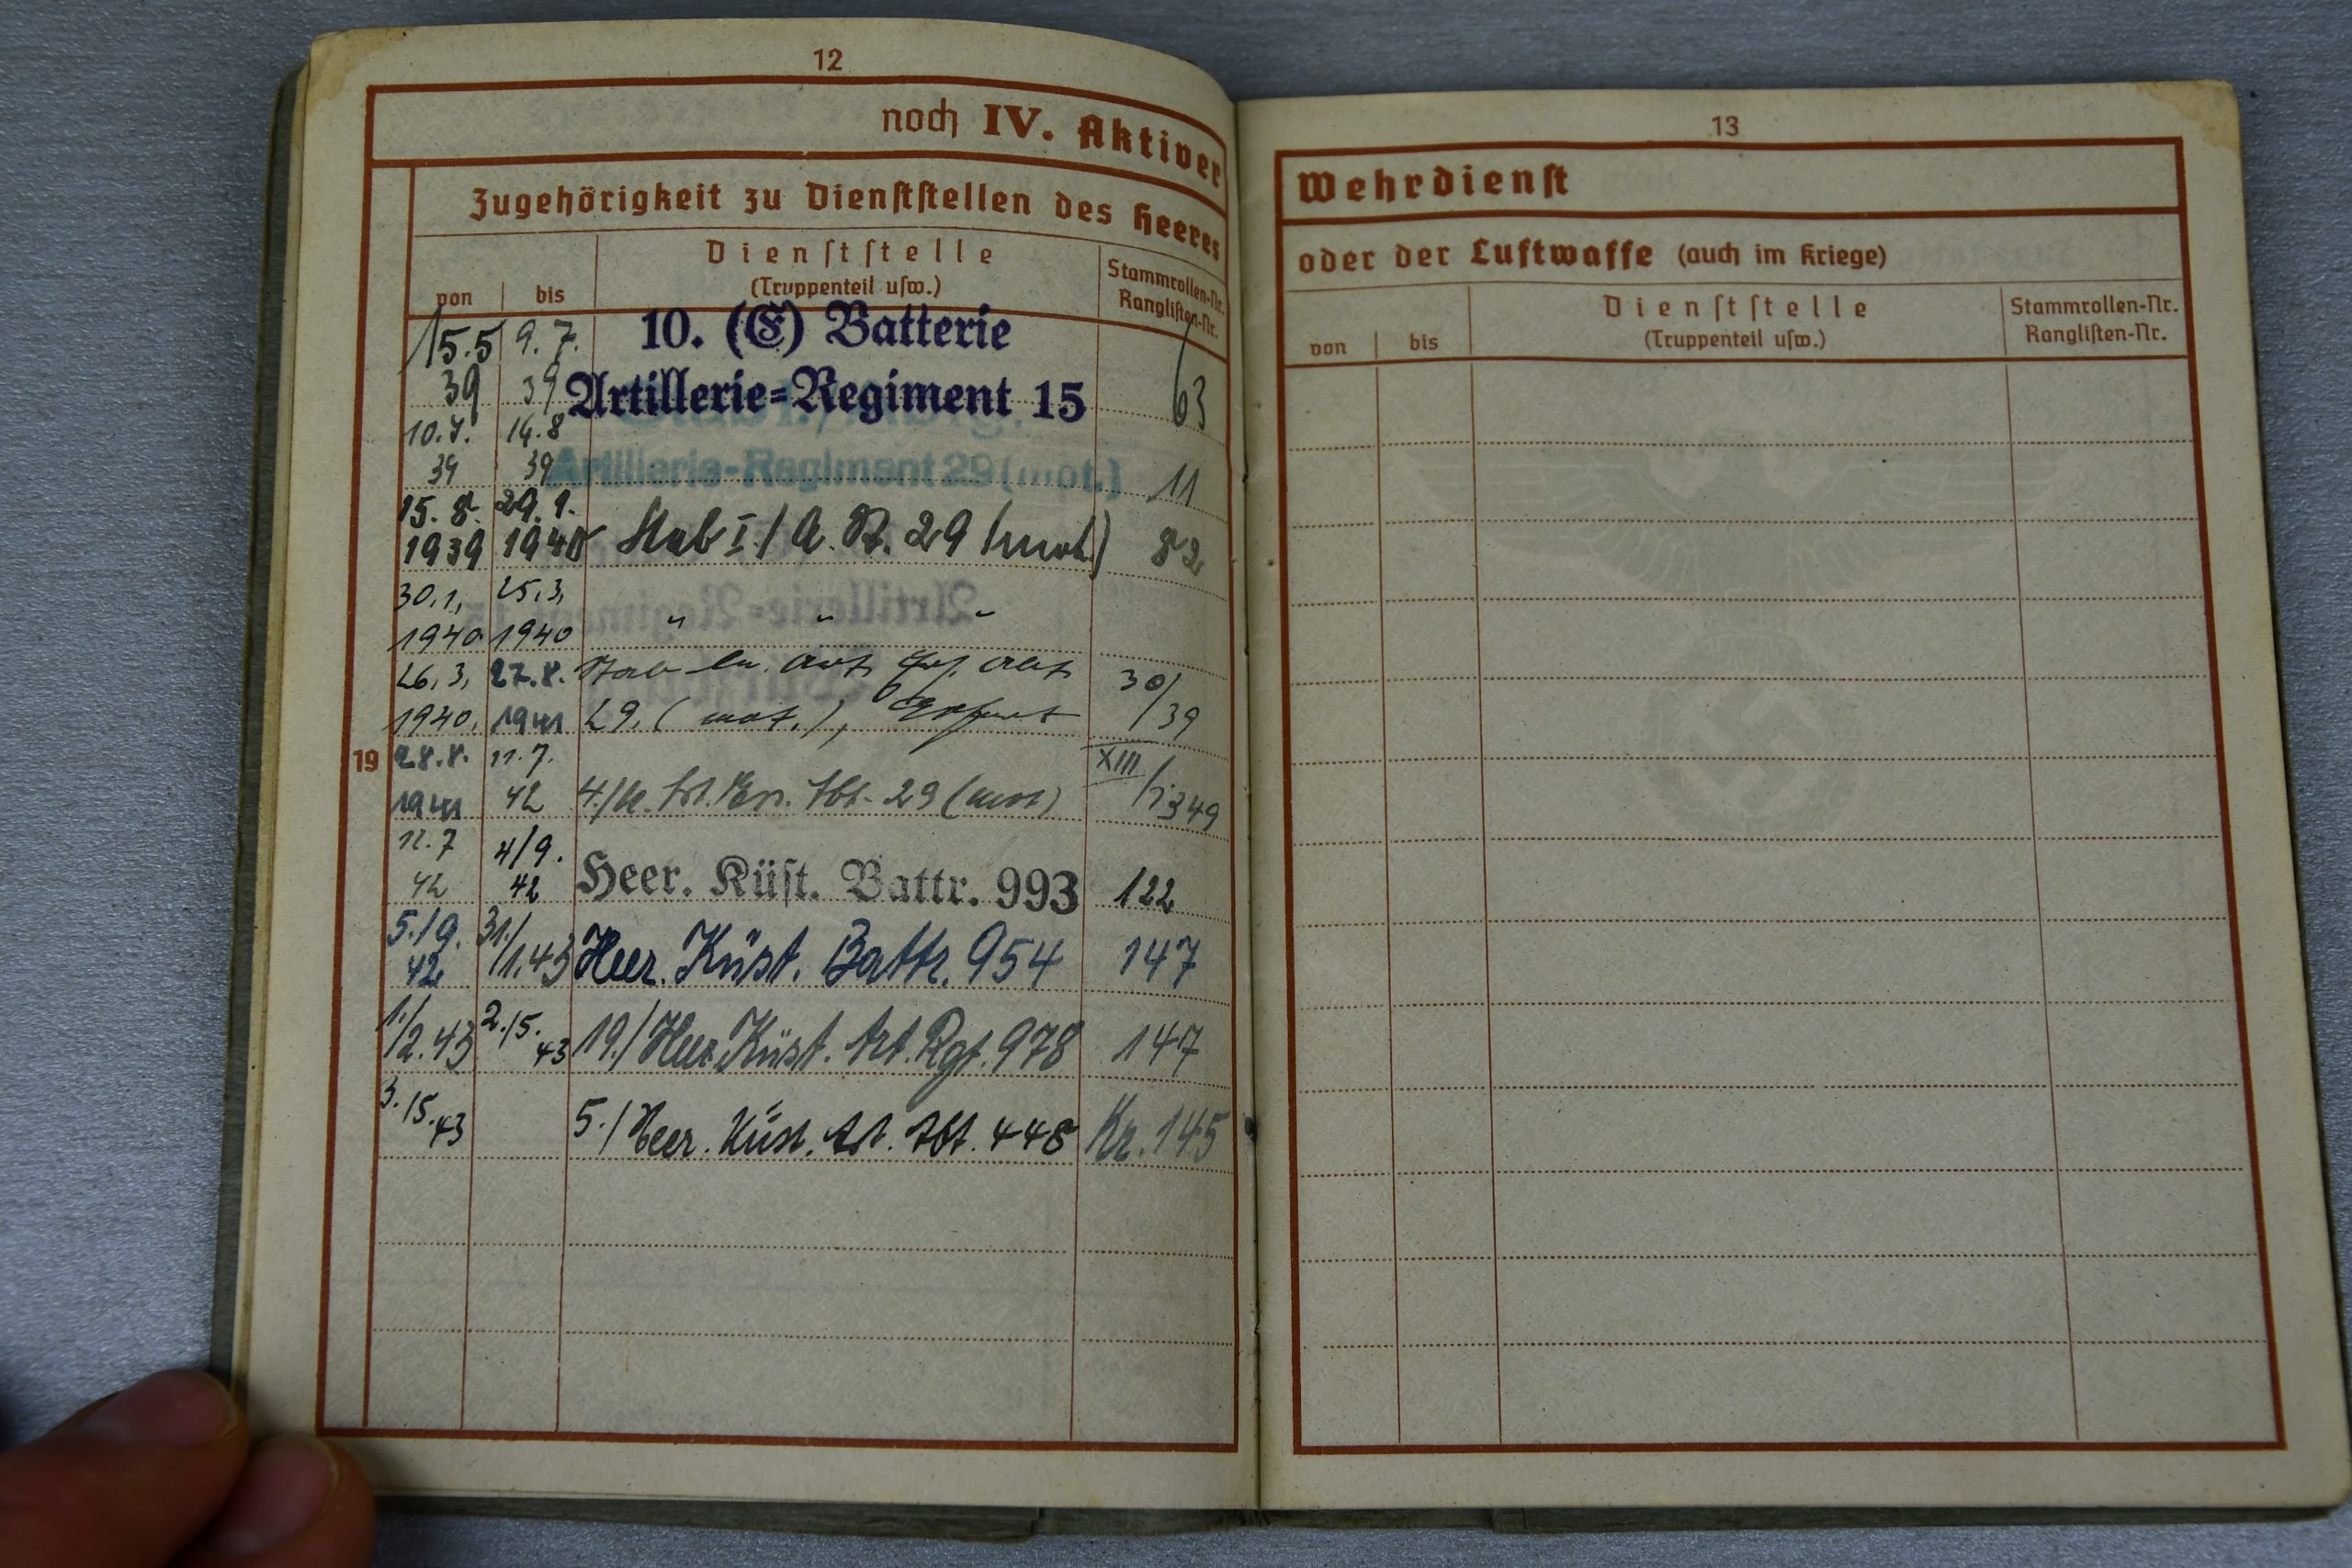 12
noch IV. Aktiver
Zugehörigkeit zu Dienststellen des Heeres
von bis Dienststelle
(Truppenteil usw.)
Stammrollen-Nr.
Ranglisten-Nr.
15.5 9.7. 10. (E) Batterie
39 39 Artillerie-Regiment 15 63
10.7. 14.8
39 39 Artillerie-Regiment 29 (mot.) 11
15.8. 29.1.
1939 1940 Stab I./A.R. 29 (mot.) 82
30.1. 25.3.
1940 1940 " " "
26.3. 27.8. Stab Art. Abt. 30/
1940. 1941 29. (mot.), Erfurt 39
19 28.8. 11.7. XIII/
1941 42 4./ Abt. 29 (mot) 1349
12.7 4/9.
42 42 Heer. Küst. Battr. 993 122
5./9. 31./
42 1.43 Heer. Küst. Battr. 954 147
1./2.43 2./5.43 19./Heer. Küst. Art. Rgt. 978 147
3./5.43 5./Heer. Küst. Art. Abt. 448 Kr. 145
13
Wehrdienst
oder der Luftwaffe (auch im Kriege)
von bis Dienststelle
(Truppenteil usw.)
Stammrollen-Nr.
Ranglisten-Nr.